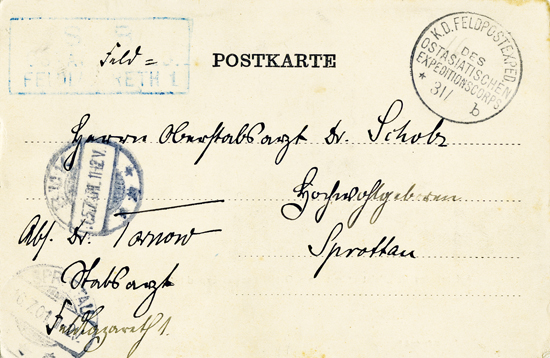 FELDLAZARETH 1.
Feld=
POSTKARTE
K.D. FELDPOSTEXPED.
DES
OSTASIATISCHEN
EXPEDITIONSCORPS
* 31/ b
Herrn Oberstabsarzt Dr. Scholz
Hochwohlgeboren
Sprottau
Abs. Dr. Tornow
Stabsarzt
Feldlazareth 1.